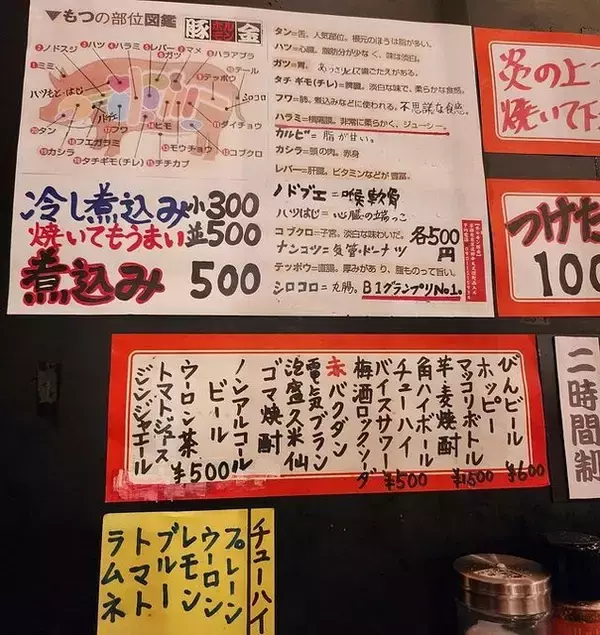 ▼もつの部位図鑑
豚 ホルモン 金
②ノドスジ
③ハツ
④ハラミ
⑤レバー
⑥ガツ
⑦マメ
⑧ハラアブラ
⑨テッポウ
⑩テール
①ミミ
ハツもとはじ
シロコロ
⑪ダイチョウ
⑫コブクロ
⑬モウチョウ
⑭ヒモ
⑮チチカブ
⑯タチギモ(チレ)
⑰フワ
⑱フエガラミ
⑲カシラ
⑳タン
冷し煮込み小300
焼いてもうまい並500
煮込み 500
タン=舌。人気部位。根元のほうは脂が多い。
ハツ=心臓。脂肪分が少なく、味は淡白。
ガツ=胃。あっさりとして歯ごたえがある。
タチギモ(チレ)=脾臓。淡白な味で、柔らかな食感。
フワ=肺。煮込みなどに使われる。不思議な食感。
ハラミ=横隔膜。非常に柔らかく、ジューシー。
カルビ=脂が甘い。
カシラ=頭の肉。赤身
レバー=肝臓。ビタミンなどが豊富。
ノドブエ=喉軟骨
ハツはじ=心臓の端っこ
コブクロ=子宮。淡白な味わいだ。
ナンコツ=気管・ドーナツ
各500円
テッポウ=直腸。厚みがあり、脂ものって旨い。
シロコロ=丸腸。B1グランプリNo.1。
炎の上
焼いて下
つけた
100
びんビール ¥600
ホッピー
マッコリボトル ¥1,500
芋・麦焼酎
角ハイボール ¥500
チューハイ
バイスサワー
梅酒ロック・ソーダ
赤バクダン
電気ブラン
泡盛久米仙
ゴマ焼酎
ノンアルコール
ビール
ウーロン茶 ¥500
トマトジュース
ジンジャエール
二時間制
チューハイ
プレーン
ウーロン
レモン
ブルー
トマト
ラムネ